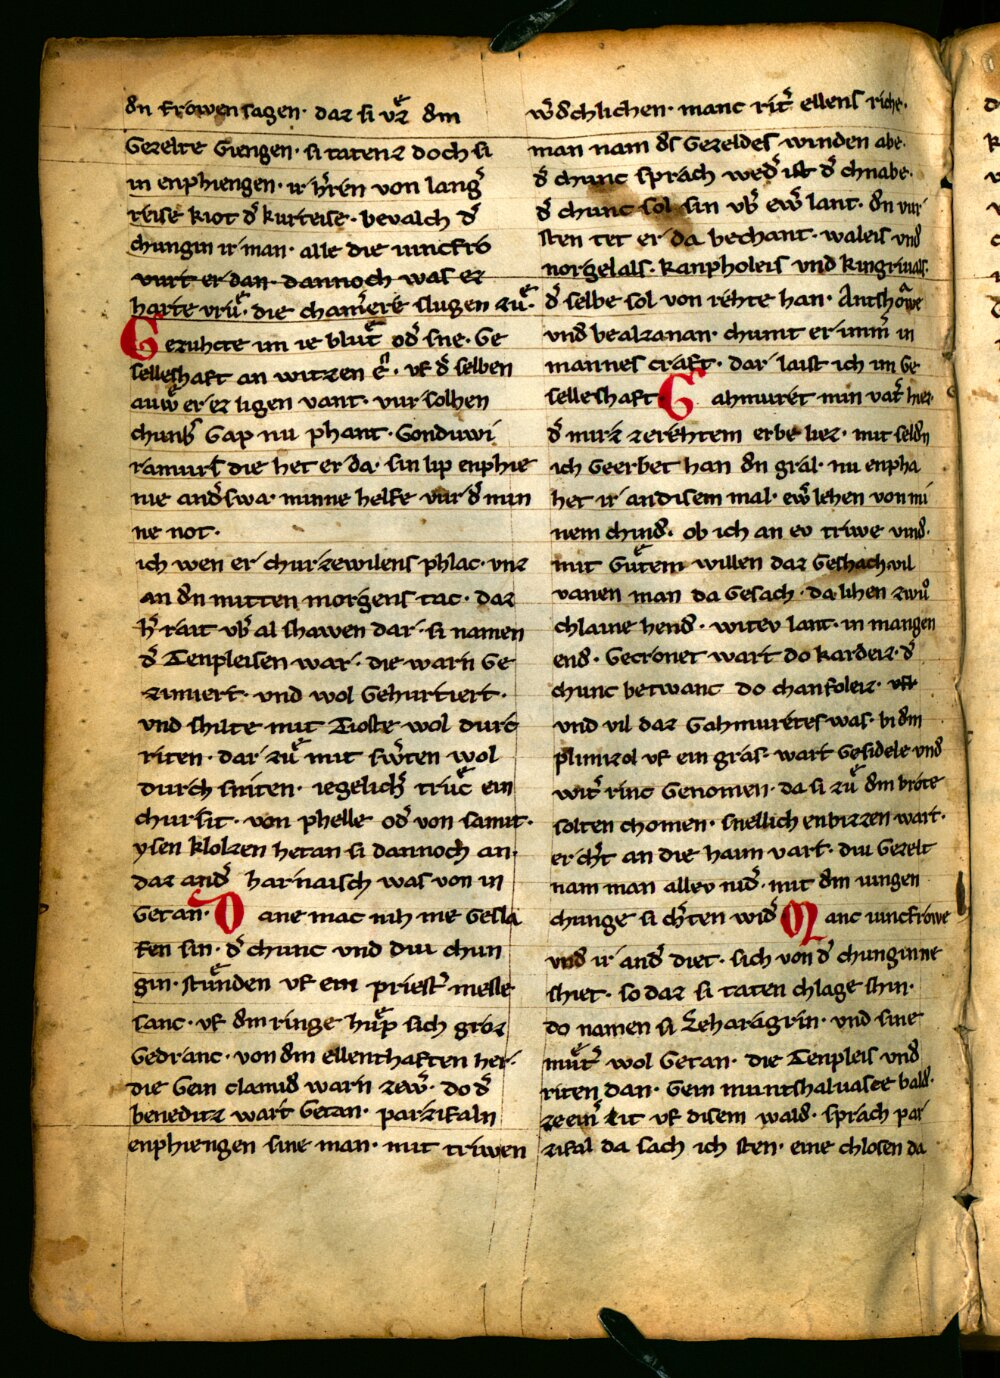 dn frowen sagen· daz si uͤz dm
Gezelte Giengen· si tatenz doch si
in enphiengen· ir h̾ren von lang̾
reise kiot d̾ kurteise· bevalch d̾
chungin ir man· alle die iuncfrŏ
vurt er dan· dannoch was ez
harte vruͤ· die cham̾ere slugen zuͤ·
Geruhcte im ie blut od̾ sne· Ge
selleshaft an witzen e͛· uf d̾ selben
auw̾ er ez ligen vant· vur solhen
chunb̾ Gap nu phant· Gonduwi
ramurs die het er da· sin lip enphie
nie and̾swa· minne helfe vur d̾ min
ne not·
ich wen er churzewilens phlac· vnz
an dn mitten morgens tac· daz
h̾ rait vb̾ al shawen dar· si namen
d̾ Tenpleisen war· die warn Ge
zimiert· vnd wol Gehurtiert·
vnd shilte mit Tioste wol durc
riten· dar zuͤ mit sw̾ten wol
durch sniten· iegelich̾ truͤc ein
chursit· von phelle od̾ von samit·
ysen kolzen hetan si dannoch an·
daz and̾ harnaisch was von in
Getan· Dane mac nih me Gesla
fen sin· d̾ chunc vnd diu chun
gin· stuͤnden uf ein priest̾ messe
sanc· uf dm ringe huͤp sich groz
Gedranc· von dm ellenthaften her·
die Gein clamid̾ warn zew̾· do d̾
beneditz wart Getan· parzifaln
enphiengen sine man· mit triwen
w̾dchlichen· manc rit̾ ellens riche·
man nam ds Gezeldes winden abe·
d̾ chunc sprach wed̾ ist d̾ chnabe·
d̾ chunc sol sin vb̾ ew̾ lant· dn vur
sten tet er da bechant· waleis vnd
norgelals· kanpholeis vnd kingriuals·
d̾ selbe sol von rehte han· Antshowe
vnd bealzanan· chumt er imm̾ in
mannes craft· dar laist ich im Ge
selleshaft· Gahmuret min vat̾ hiez·
d̾ mirz zerehtem erbe liez· mit seldn
ich Geerbet han dn gral· nu enpha
het ir andisem mal· ew̾ lehen von mi
nem chind· ob ich an ev triwe vind·
mit Guͤtem willen daz Geshach· vil
vanen man da Gesach· da lihen zwuͦ
chlaine hend· witev lant· in mangen
end· Gecronet wart do kardeiz· d̾
chunc betwanc do chanfoleiz· vn
vnd vil daz Gahmuretes was· bi dm
plimizol uf ein gras· wart Gesidele vnd
wit̾ rinc Genomen· da si zuͤ dm brote
solten chomen· snellich enbizzen wart·
er ch̾t an die haim vart· diu Gezelt
nam man allev nid̾· mit dm iungen
chunge si ch̾ten wid̾ Manc iuncfrowe
vnd ir and̾ diet· sich von d̾ chunginne
shiet· so daz si taten chlage shin·
do namen si Leharagrin· vnd sine
muͤt̾ wol Getan· die Tenpleis vnd
riten dan· Gein muntshalvasce bald·
zeein̾ zit uf disem wald· sprach par
zifal da sach ich sten· eine chlosen da